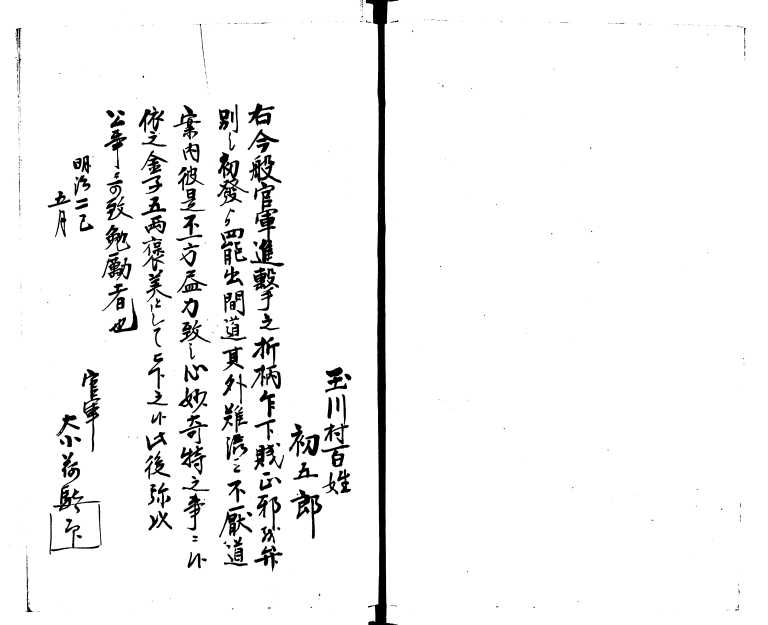 玉川村百姓
初五郎
右今般官軍進撃之折柄乍下賤正邪を弁
別し初發ゟ罷出間道其外難渋ニ不厭道
案内彼是不一方益力致し心妙奇特之事ニ候
依之金子五両褒美として被下之候此後弥以
公事ニ可致勉励者也
明治二巳
五月
官軍
大小荷駄印